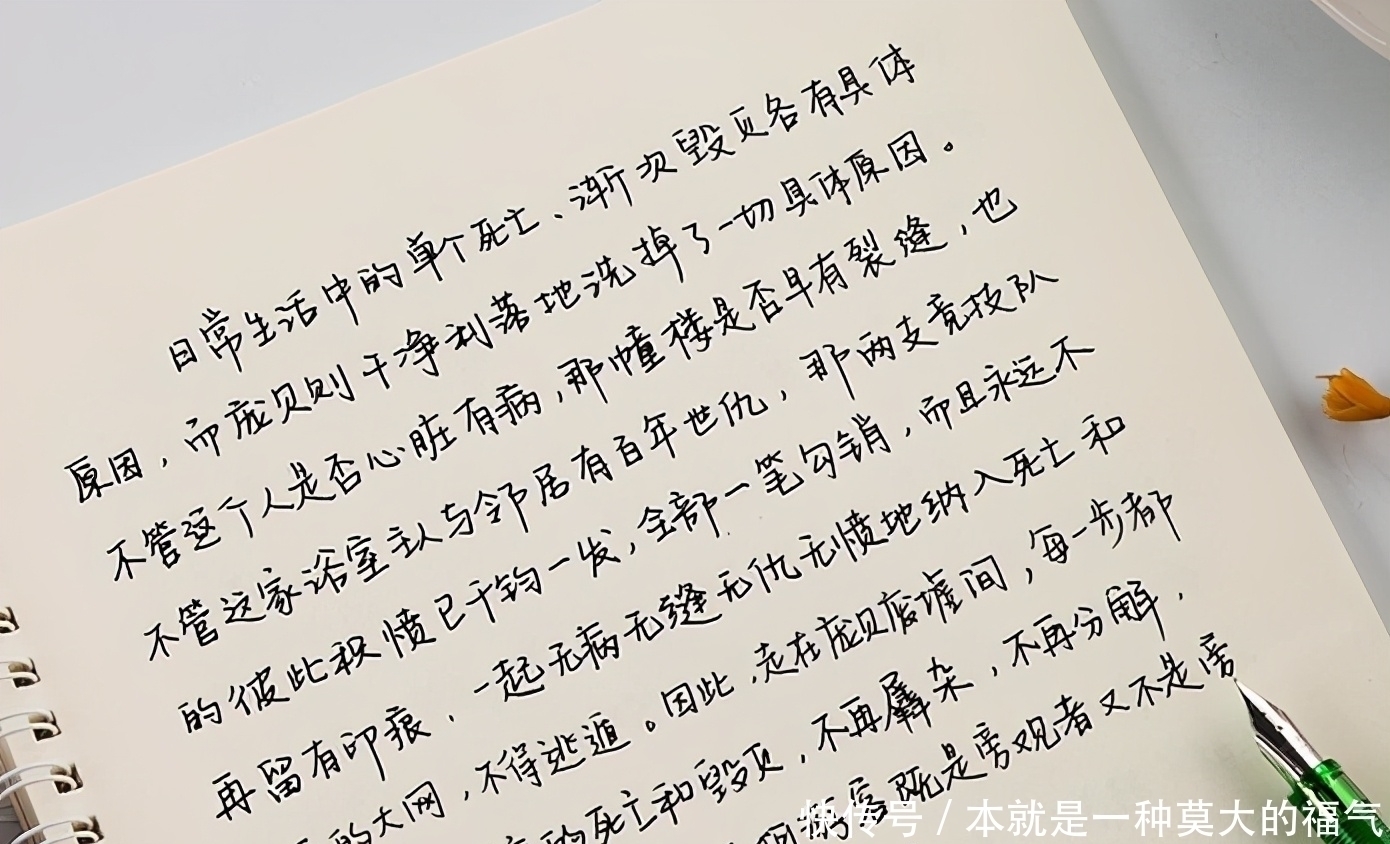 日常生活中的单个死亡、渐次毁灭各有具体
原因，而庞贝则干净利落地洗掉了一切具体原因。
不管这个人是否心脏有病，那幢楼是否早有裂缝，也
不管这家浴室主人与邻居有百年世仇，那两支竞技队
的彼此积愤已千钧一发，全部一笔勾销，而且永远不
再留有印痕，一起无病无缝无仇无愤地纳入死亡和
的大网，不得逃遁。因此，走在庞贝废墟间，每一步都
的死亡和毁灭，不再羼杂，不再分解，
既是旁观者又不是旁
快传号 / 本就是一种莫大的福气